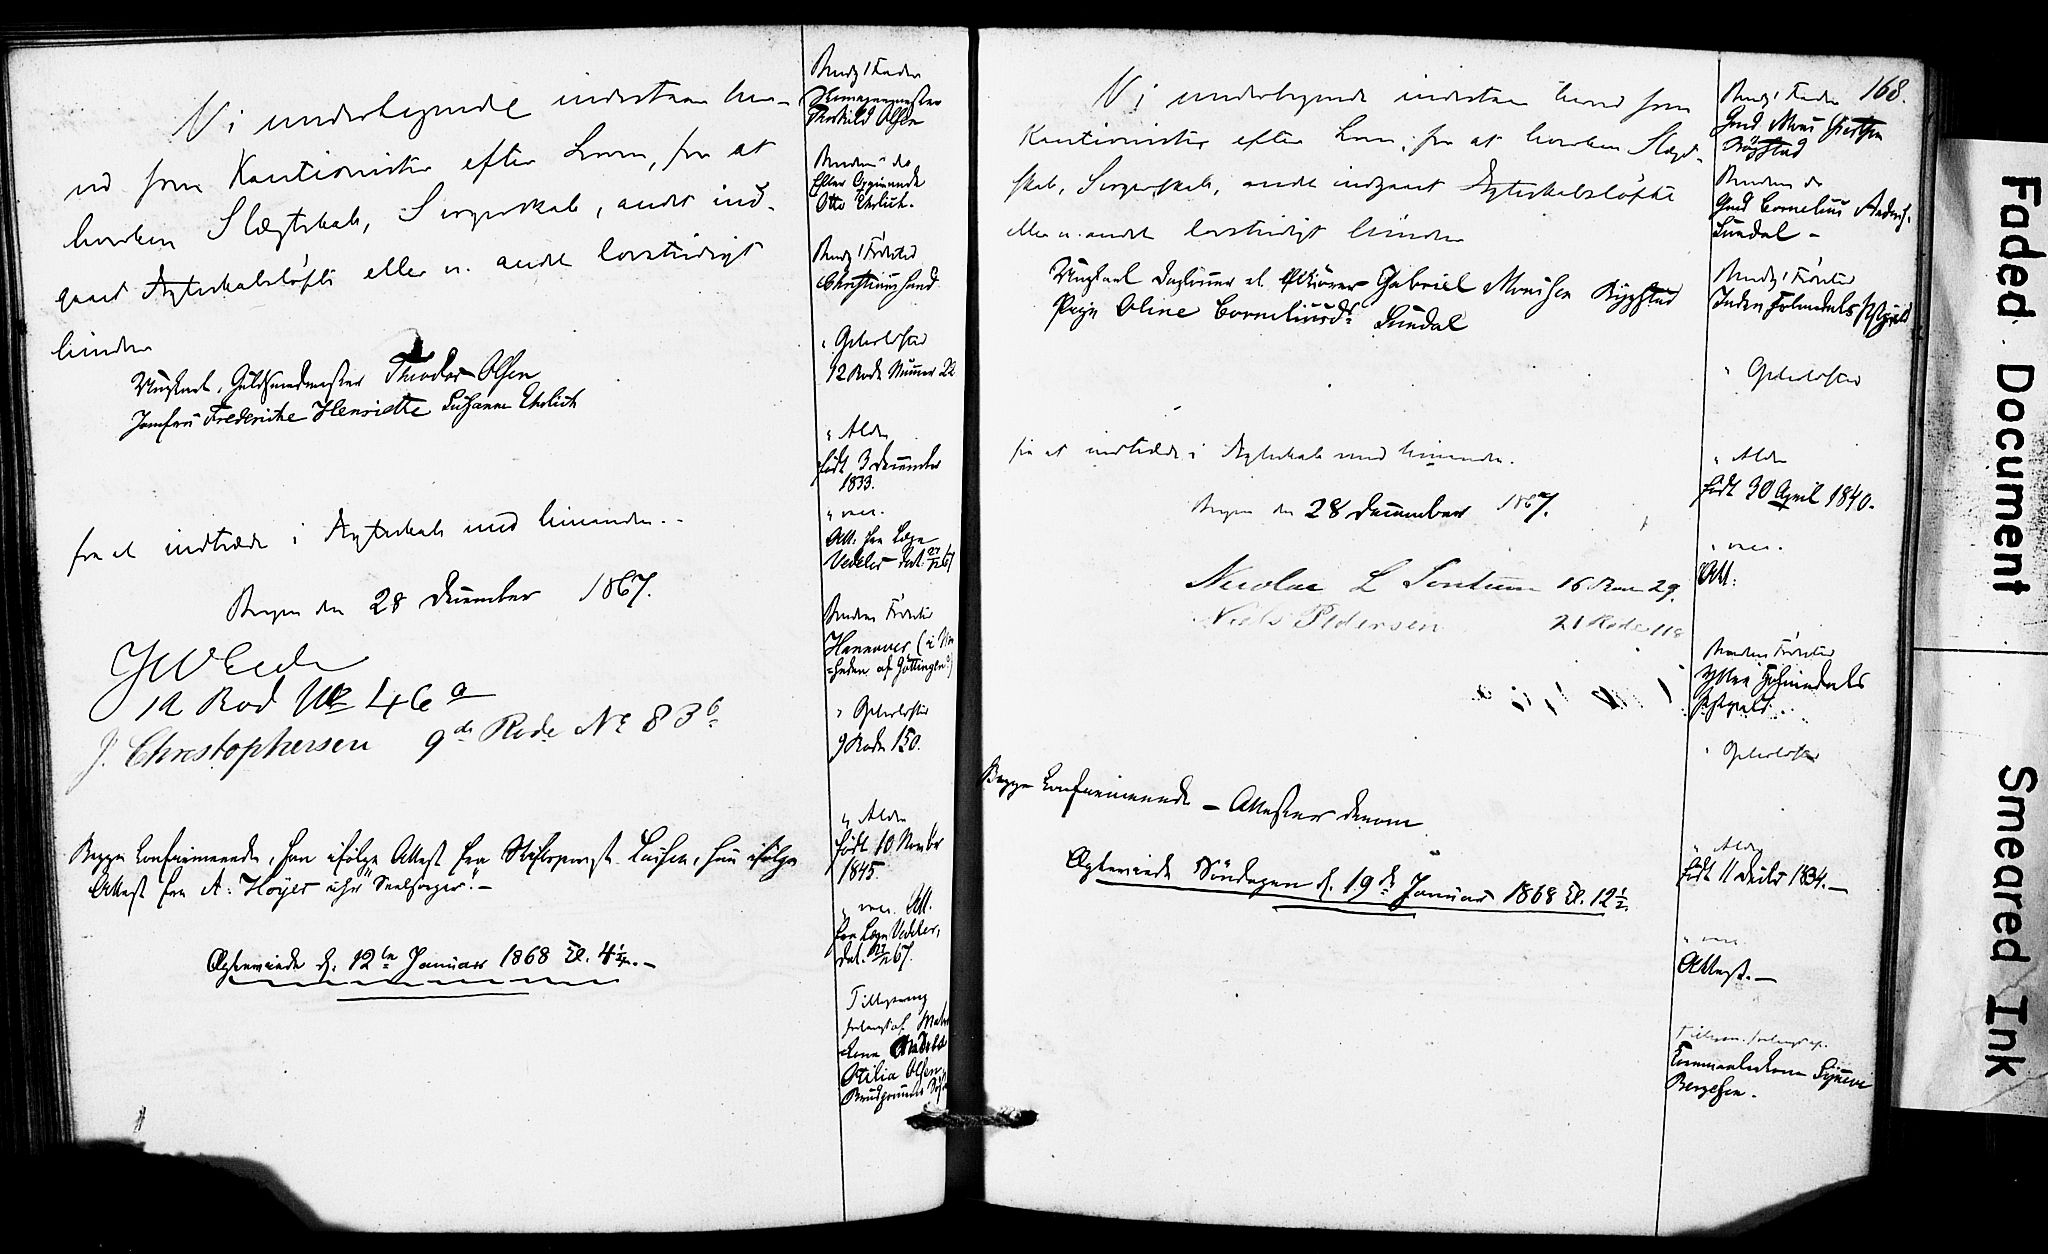 Vi undertegnede indestaae her-
ved som Kautionister efter Loven, for at
hverken Slægtskab, Svogerskab, andet ind-
gaaet Ægteskabsløfte eller n. andet lovstridigt
hindrer
Ungkarl, Guldsmedmester Theodor Olsen
Jomfru Frederikke Henriette Susanne Ehrlich
for at indtræde i Ægteskab med hinanden.
Bergen den 28 December 1867.
12 Rod No 46 a
J. Christophersen 9de Rode No 83 b
Begge Confirmerede, han ifølge Attest fra Stiftsprovst, hun ifølge
Attest fra A. Høyer ihr "Seelsorger".-
Ægteviede d. 12te Januar 1868 Kl. 4½.-
Brudg. Fader
Thorkild Olsen
Brudens do
Efter Opgivende
Otto Ehrlich.
Brudg. Fødested
Christiansund
" Opholdssted
12 Rode Numer 22
" Alder
født 3 December
1833.
" vac.
Att. fra Læge
Vedeler dat. 27/12 67
Brudens Fødested
Hannover (i Nær
=heden af Gøttingen?)
" Opholdssted
9 Rode 150.
" Alder
født 10 Novbr
1845.
" vac. Att.
fra Læge Vedeler,
dat. 27/12 67.
Tillysning
forlangt af
Otilia Olsen
Brudgommens
168.
Vi undertegnede indestaae herved som
Kautionister efter Loven, for at hverken Slægt-
skab, Svogerskab, andet indgaaet Ægteskabsløfte
eller n. andet lovstridigt hindrer
Ungkarl Gabriel Monsen Rygstad
Pige Oline Corneliusdr Sundal
for at indtræde i Ægteskab med hinanden.
Bergen den 28 December 1867.
Nicolai L Sontum 16 Rode 29.
Niels Pedersen 21 Rode 118
Begge Confirmerede - Attester derom
Ægteviede Søndagen d. 19de Januar 1868 Kl. 12½.
Brudg. Fader
Gmd Mons
Rygstad
Brudens do
Gmd Cornelius Anders.
Sundal -
Brudg. Fødested
Inden Holmedals Pstgjeld
" Opholdssted
" Alder
født 30 April 1840.
" vac.
Att:
Brudens Fødested
Ytre Holmedals
Pstgjeld.
" Opholdssted
" Alder
født 11 Decbr 1834.-
" vac
Attest.-
Tillysn. forlangt af
Synneve
Bergesen.
Faded Document
Smeared Ink